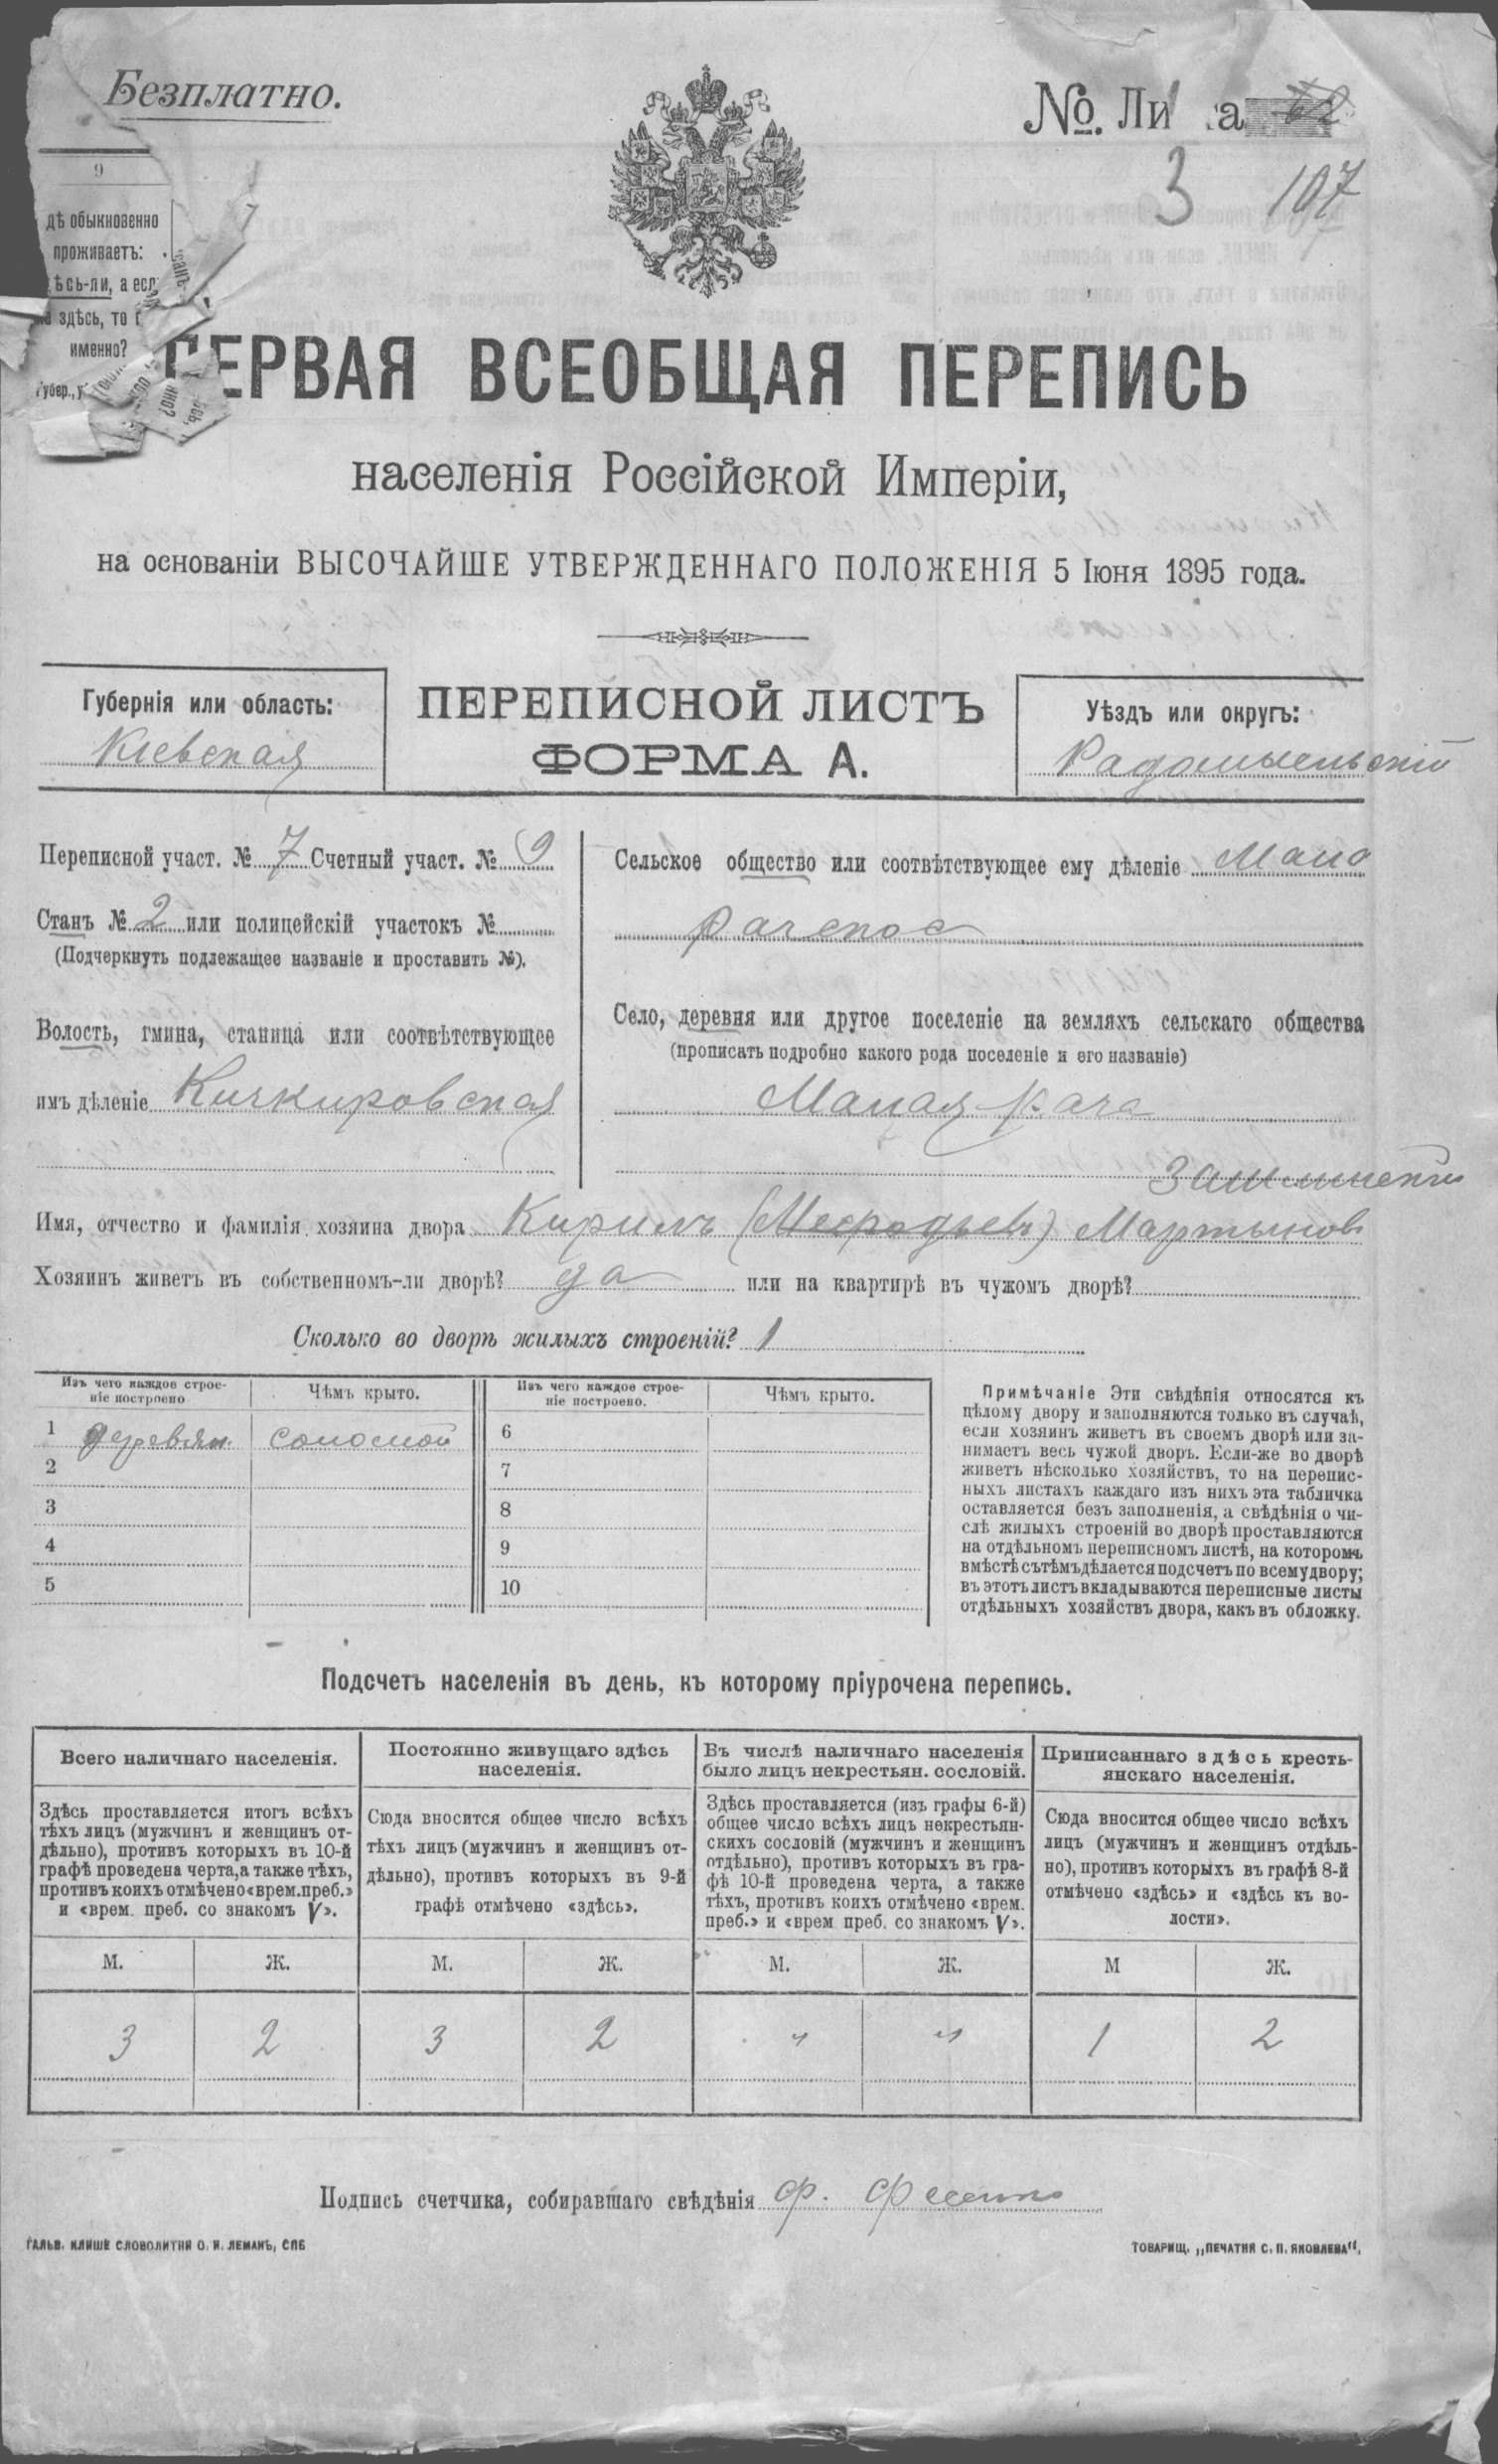 Безплатно.
№. Ли са 62
3 107
9
дѣ обыкновенно
проживаетъ:
ѣсь-ли, а есл
не здѣсь, то г
именно?
Губер., у
ПЕРВАЯ ВСЕОБЩАЯ ПЕРЕПИСЬ
населенія Россійской Имперіи,
на основаніи ВЫСОЧАЙШЕ УТВЕРЖДЕННАГО ПОЛОЖЕНІЯ 5 Іюня 1895 года.
Губернія или область:
Кіевская
ПЕРЕПИСНОЙ ЛИСТЪ
ФОРМА А.
Уѣздъ или округъ:
Радомысльскій
Переписной участ. № 7 Счетный участ. № 9
Станъ № 2 или полицейскій участокъ №
(Подчеркнуть подлежащее названіе и проставить №).
Волость, гмина, станица или соотвѣтствующее
имъ дѣленіе Кичкировская
Сельское общество или соотвѣтствующее ему дѣленіе Мало
рачское
Село, деревня или другое поселеніе на земляхъ сельскаго общества
(прописать подробно какого рода поселеніе и его названіе)
Малая Рача
Имя, отчество и фамилія хозяина двора Кирилъ (Мефодьевъ) Мартыновъ
Хозяинъ живетъ въ собственномъ-ли дворѣ? да или на квартирѣ въ чужомъ дворѣ?
Сколько во дворѣ жилыхъ строеній? 1
Изъ чего каждое строе-
ніе построено
Чѣмъ крыто.
Изъ чего каждое строе-
ніе построено.
Чѣмъ крыто.
1 деревян. соломой 6
2 7
3 8
4 9
5 10
Примѣчаніе Эти свѣдѣнія относятся къ
цѣлому двору и заполняются только въ случаѣ,
если хозяинъ живетъ въ своемъ дворѣ или за-
нимаетъ весь чужой дворъ. Если-же во дворѣ
живетъ нѣсколько хозяйствъ, то на перепис-
ныхъ листахъ каждаго изъ нихъ эта табличка
оставляется безъ заполненія, а свѣдѣнія о чи-
слѣ жилыхъ строеній во дворѣ проставляются
на отдѣльномъ переписномъ листѣ, на которомъ
вмѣстѣ сътѣмъ дѣлается подсчетъ по всему двору;
въ этотъ листъ вкладываются переписные листы
отдѣльныхъ хозяйствъ двора, какъ въ обложку.
Подсчетъ населенія въ день, къ которому пріурочена перепись.
Всего наличнаго населенія.
Здѣсь проставляется итогъ всѣхъ
тѣхъ лицъ (мужчинъ и женщинъ от-
дѣльно), противъ которыхъ въ 10-й
графѣ проведена черта, а также тѣхъ,
противъ коихъ отмѣчено «врем. преб.»
и «врем. преб. со знакомъ V».
Постоянно живущаго здѣсь
населенія.
Сюда вносится общее число всѣхъ
тѣхъ лицъ (мужчинъ и женщинъ от-
дѣльно), противъ которыхъ въ 9-й
графѣ отмѣчено «здѣсь».
Въ числѣ наличнаго населенія
было лицъ некрестьян. сословій.
Здѣсь проставляется (изъ графы 6-й)
общее число всѣхъ лицъ некрестьян-
скихъ сословій (мужчинъ и женщинъ
отдѣльно), противъ которыхъ въ гра-
фѣ 10-й проведена черта, а также
тѣхъ, противъ коихъ отмѣчено «врем.
преб.» и «врем преб. со знакомъ V».
Приписаннаго здѣсь кресть-
янскаго населенія.
Сюда вносится общее число всѣхъ
лицъ (мужчинъ и женщинъ отдѣль-
но), противъ которыхъ въ графѣ 8-й
отмѣчено «здѣсь» и «здѣсь къ во-
лости».
М. Ж. М. Ж. М. Ж. М Ж.
3 2 3 2 " " 1 2
Подпись счетчика, собиравшаго свѣдѣнія Ф.
ГАЛЬВ. КЛИШЕ СЛОВОЛИТНИ О. И. ЛЕМАНЪ, СПБ
ТОВАРИЩ. „ПЕЧАТНЯ С. П. ЯКОВЛЕВА“.